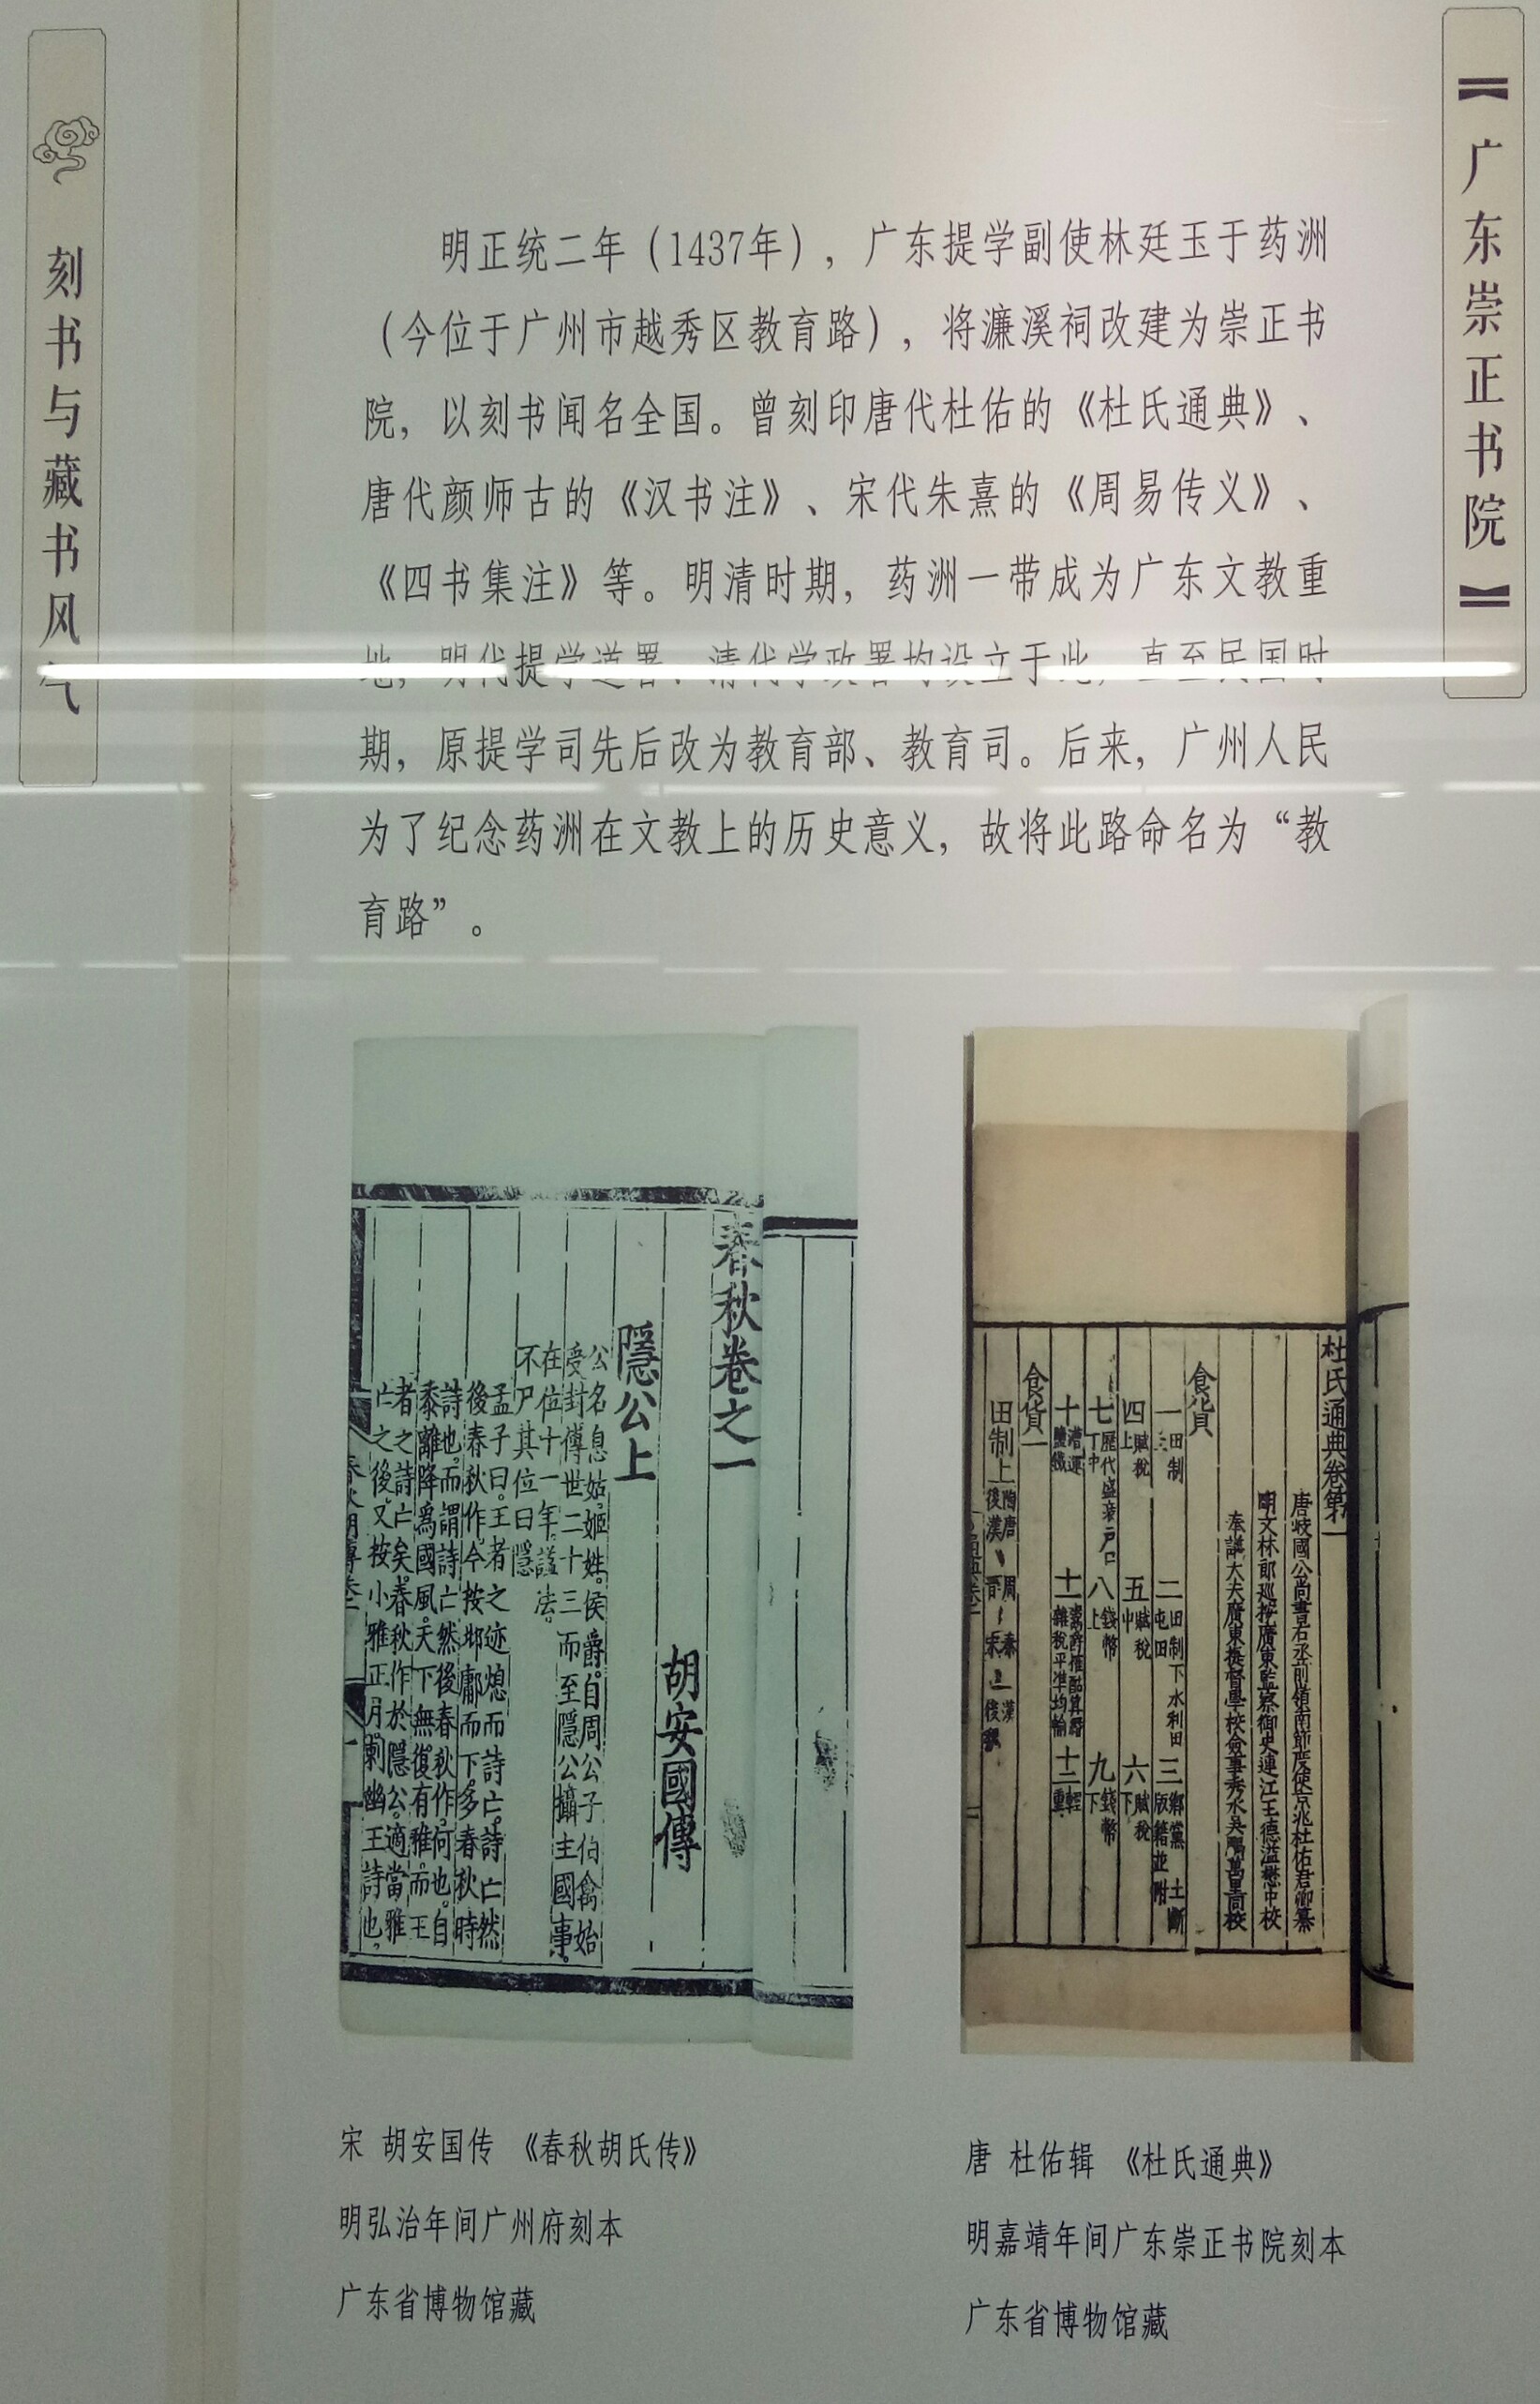 【广东崇正书院】
刻书与藏书风气
明正统二年（1437年），广东提学副使林廷玉于药洲
（今位于广州市越秀区教育路），将濂溪祠改建为崇正书
院，以刻书闻名全国。曾刻印唐代杜佑的《杜氏通典》、
唐代颜师古的《汉书注》、宋代朱熹的《周易传义》、
《四书集注》等。明清时期，药洲一带成为广东文教重
地，明代提学道署、清代学政署均设立于此，直至民国时
期，原提学司先后改为教育部、教育司。后来，广州人民
为了纪念药洲在文教上的历史意义，故将此路命名为“教
育路”。
春秋卷之一
胡安國傳
隱公上
公名息姑，姬姓。侯爵。自周公子伯禽始
受封傳世二十三而至隱公攝主國事。
在位十一年。謚法。
不尸其位曰隱
孟子曰。王者之迹熄而詩亡。詩亡然
後春秋作。今按邶鄘而下。多春秋時
詩也。而謂詩亡然後春秋作。何也。自
黍離降爲國風。天下無復有雅。而王
者之詩亡矣。春秋作於隱公。適當雅
亡之後。又按小雅正月刺幽王詩也。
杜氏通典卷第一
唐岐國公尚書右丞前領南節度使京兆杜佑君卿纂
明文林郎巡按廣東監察御史連江王德溢懋中校
奉議大夫廣東提督學校僉事秀水吳鵬萬里同校
食貨
一田制上
二田制下水利田屯田
三鄉黨土斷版籍並附
四賦稅上
五賦稅中
六賦稅下
七歷代盛衰戶口丁中
八錢幣上
九錢幣下
十漕運鹽鐵
十一鬻爵榷酤算緡雜稅平準均輸
十二輕重
食貨一
田制上
宋 胡安国传 《春秋胡氏传》
明弘治年间广州府刻本
广东省博物馆藏
唐 杜佑辑 《杜氏通典》
明嘉靖年间广东崇正书院刻本
广东省博物馆藏